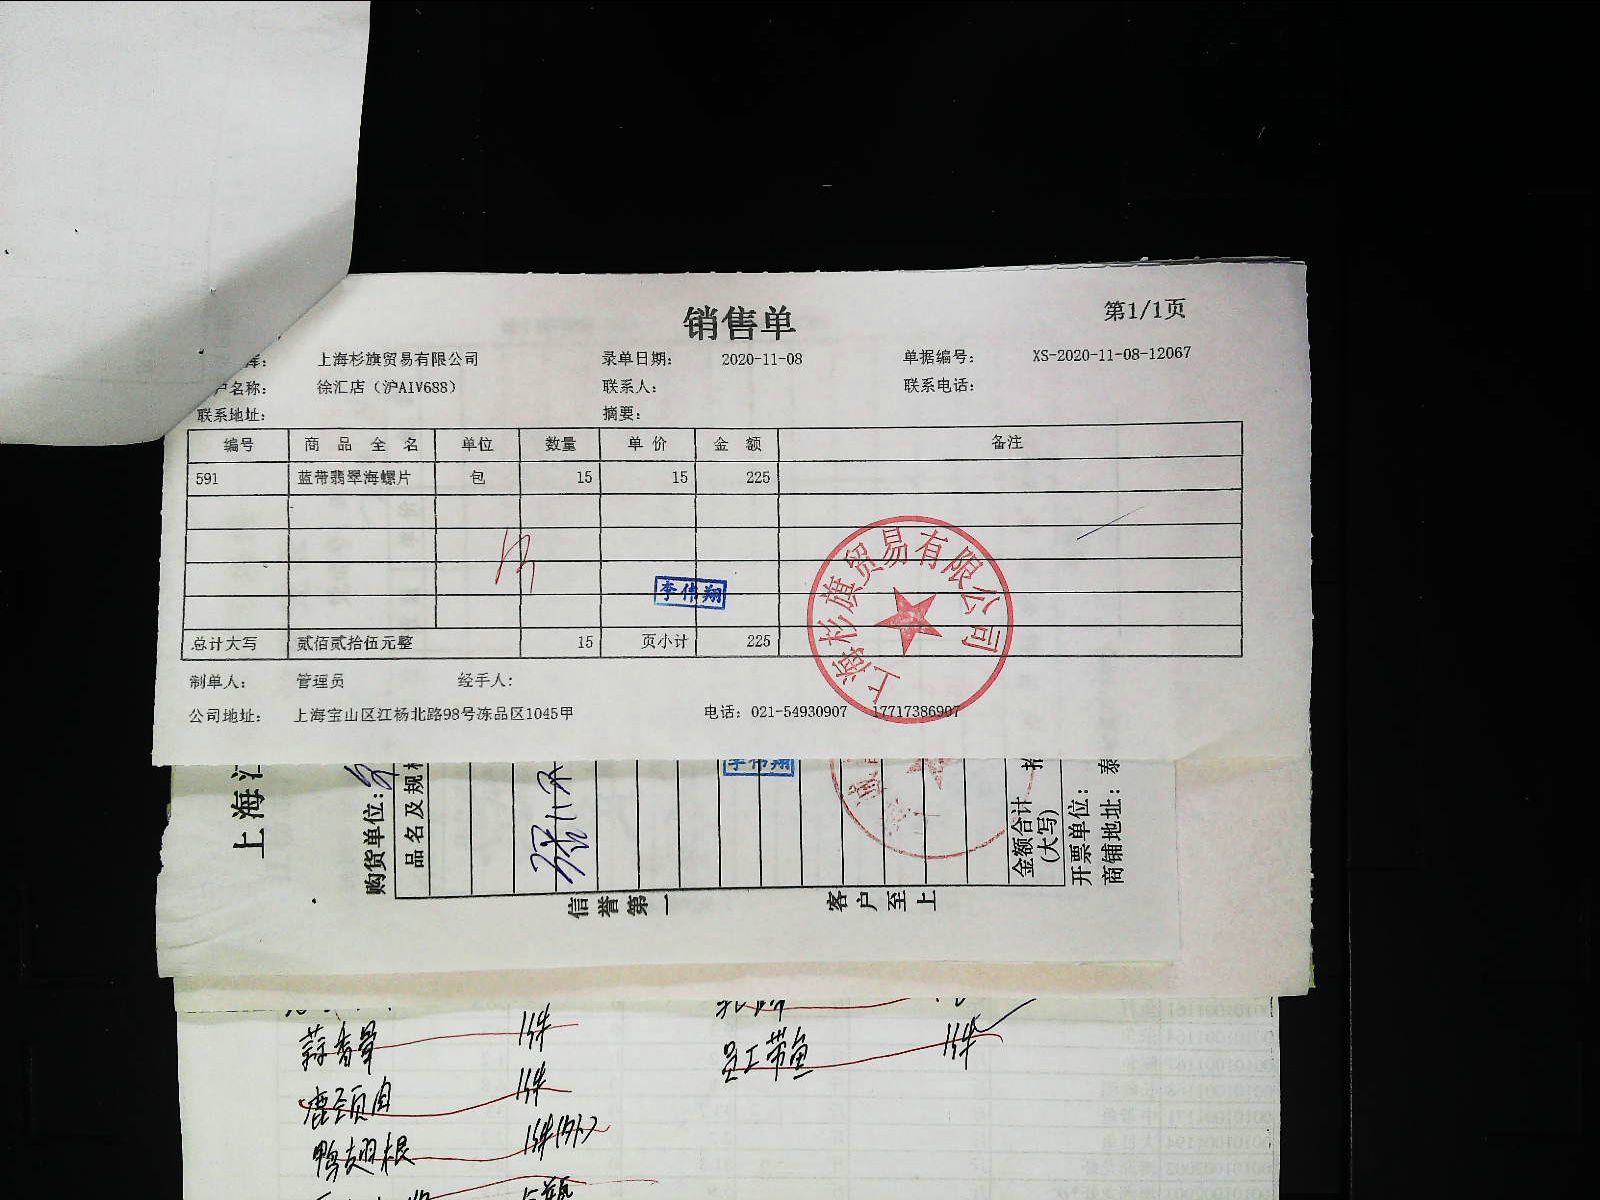 销售单
第1/1页
上海杉旗贸易有限公司 录单日期: 2020-11-08 单据编号: XS-2020-11-08-12067
户名称: 徐汇店（沪AIV688） 联系人: 联系电话:
联系地址: 摘要:
编号 商品全名 单位 数量 单价 金额 备注
591 蓝带翡翠海螺片 包 15 15 225
李伟翔
上海杉旗贸易有限公司
总计大写 贰佰贰拾伍元整 15 页小计 225
制单人: 管理员 经手人:
公司地址: 上海宝山区江杨北路98号冻品区1045甲 电话: 021-54930907 17717386907
上海江
购货单位:
品名及规格
李伟翔
金额合计
(大写)
开票单位:
商铺地址: 泰
信誉第一 客户至上
蒜香骨 1件
鹿颈肉 1件
鸭翅根 1件(外)
员工带鱼 1件